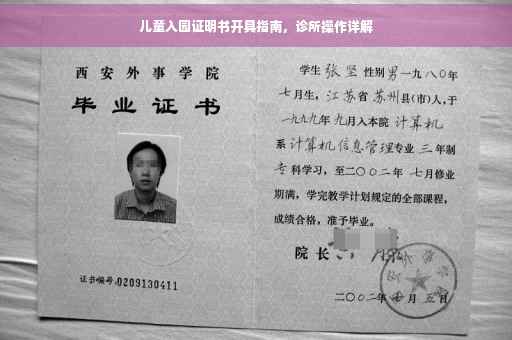 儿童入园证明书开具指南，诊所操作详解
西安外事学院
毕业证书
证书编号:0209130411
学生张坚性别男一九八〇年
七月生，江苏省苏州县(市)人,于
一九九九年九月入本院计算机
系计算机信息管理专业三年制
专科学习，至二〇〇二年七月修业
期满，学完教学计划规定的全部课程，
成绩合格，准予毕业。
院长
外事学院
二〇〇二年 月五日